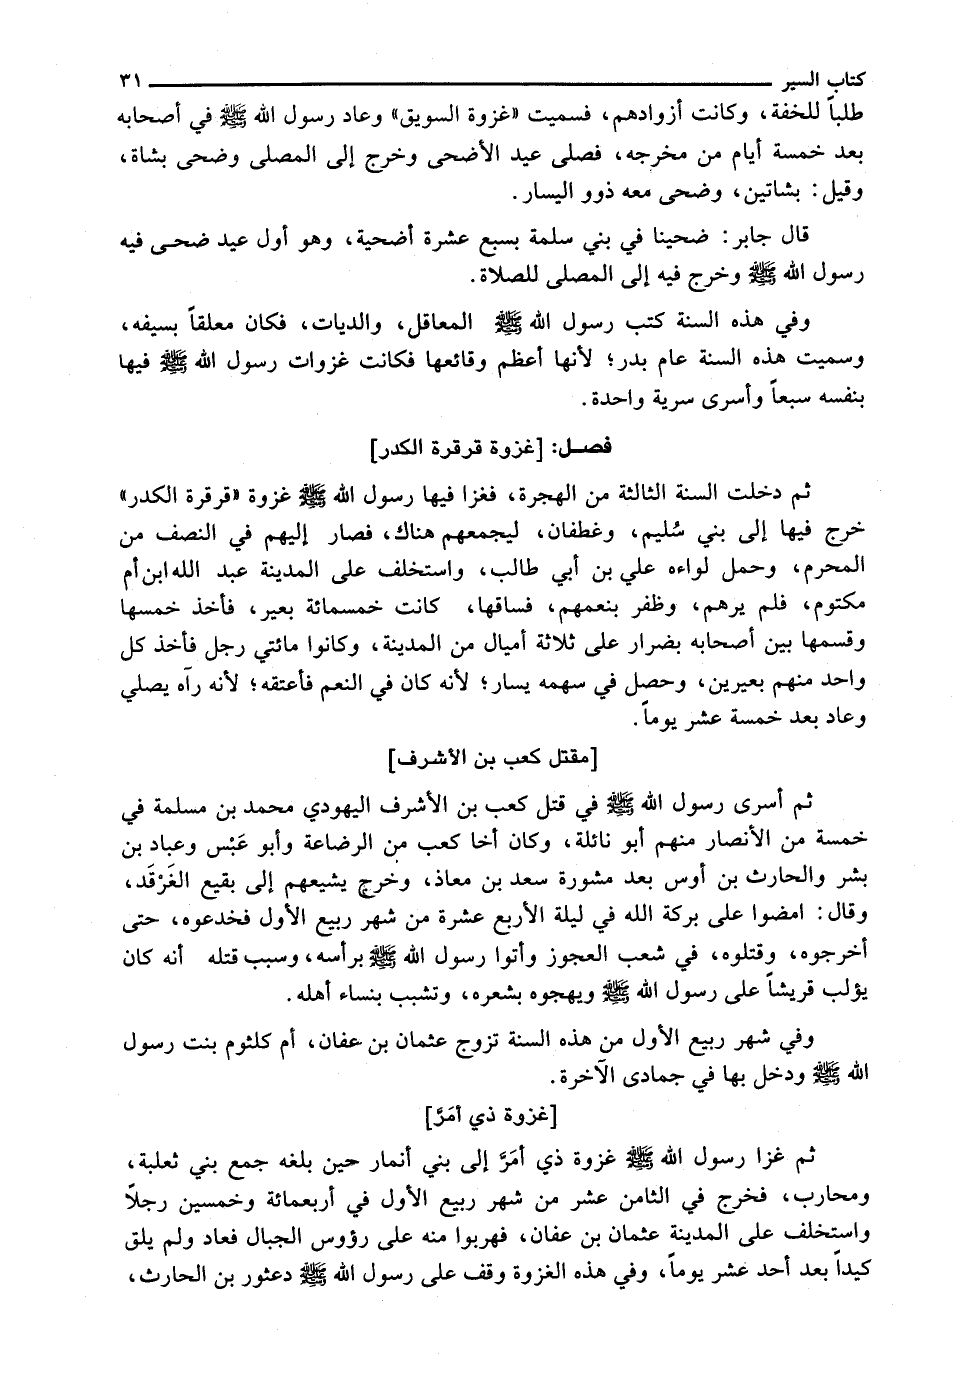 كتاب السير ٣١
طلباً للخفة، وكانت أزوادهم، فسميت «غزوة السويق» وعاد رسول الله ﷺ في أصحابه
بعد خمسة أيام من مخرجه، فصلى عيد الأضحى وخرج إلى المصلى وضحى بشاة،
وقيل: بشاتين، وضحى معه ذوو اليسار.
قال جابر: ضحينا في بني سلمة بسبع عشرة أضحية، وهو أول عيد ضحى فيه
رسول الله ﷺ وخرج فيه إلى المصلى للصلاة.
وفي هذه السنة كتب رسول الله ﷺ المعاقل، والديات، فكان معلقاً بسيفه،
وسميت هذه السنة عام بدر؛ لأنها أعظم وقائعها فكانت غزوات رسول الله ﷺ فيها
بنفسه سبعاً وأسرى سرية واحدة.
فصل: [غزوة قرقرة الكدر]
ثم دخلت السنة الثالثة من الهجرة، فغزا فيها رسول الله ﷺ غزوة «قرقرة الكدر»
خرج فيها إلى بني سُليم، وغطفان، ليجمعهم هناك، فصار إليهم في النصف من
المحرم، وحمل لواءه علي بن أبي طالب، واستخلف على المدينة عبد الله ابن أم
مكتوم، فلم يرهم، وظفر بنعمهم، فساقها، كانت خمسمائة بعير، فأخذ خمسها
وقسمها بين أصحابه بضرار على ثلاثة أميال من المدينة، وكانوا مائتي رجل فأخذ كل
واحد منهم بعيرين، وحصل في سهمه يسار؛ لأنه كان في النعم فأعتقه؛ لأنه رآه يصلي
وعاد بعد خمسة عشر يوماً.
[مقتل كعب بن الأشرف]
ثم أسرى رسول الله ﷺ في قتل كعب بن الأشرف اليهودي محمد بن مسلمة في
خمسة من الأنصار منهم أبو نائلة، وكان أخا كعب من الرضاعة وأبو عَبْس وعباد بن
بشر والحارث بن أوس بعد مشورة سعد بن معاذ، وخرج يشيعهم إلى بقيع الغَرْقَد،
وقال: امضوا على بركة الله في ليلة الأربع عشرة من شهر ربيع الأول فخدعوه، حتى
أخرجوه، وقتلوه، في شعب العجوز وأتوا رسول الله ﷺ برأسه، وسبب قتله أنه كان
يؤلب قريشاً على رسول الله ﷺ ويهجوه بشعره، وتشبب بنساء أهله.
وفي شهر ربيع الأول من هذه السنة تزوج عثمان بن عفان، أم كلثوم بنت رسول
الله ﷺ ودخل بها في جمادى الآخرة.
[غزوة ذي أمَرَّ]
ثم غزا رسول الله ﷺ غزوة ذي أمَرَّ إلى بني أنمار حين بلغه جمع بني ثعلبة،
ومحارب، فخرج في الثامن عشر من شهر ربيع الأول في أربعمائة وخمسين رجلاً
واستخلف على المدينة عثمان بن عفان، فهربوا منه على رؤوس الجبال فعاد ولم يلق
كيداً بعد أحد عشر يوماً، وفي هذه الغزوة وقف على رسول الله ﷺ دعثور بن الحارث،